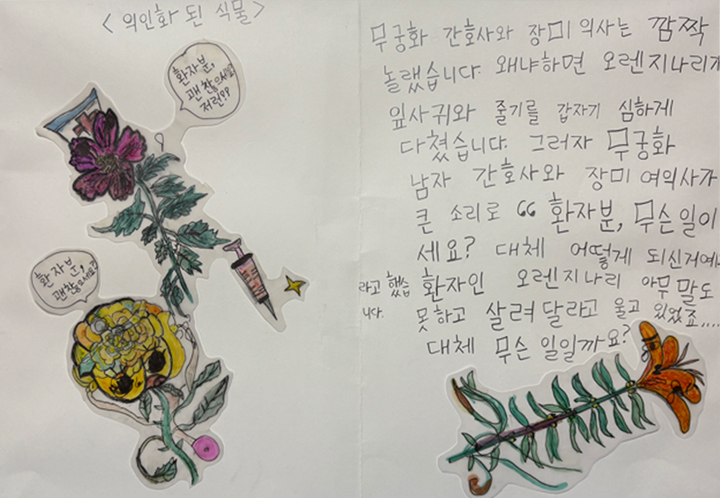 < 의인화 된 식물>
환자분,
괜찮으세요?
저런??
환자분,
괜찮으세요?
무궁화 간호사와 장미 의사는 깜짝
놀랬습니다. 왜냐하면 오렌지나리가
잎사귀와 줄기를 갑자기 심하게
다쳤습니다. 그러자 무궁화
남자 간호사와 장미 여의사가
큰 소리로 “ 환자분, 무슨일이
세요? 대체 어떻게 되신거예
라고 했습 환자인 오렌지나리 아무말도
니다. 못하고 살려달라고 울고 있었죠....
대체 무슨 일일까요?